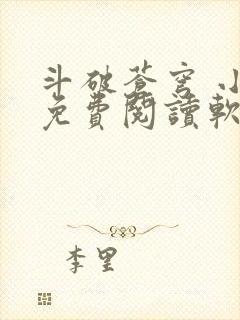 斗破蒼穹
免費閱讀軟
李里